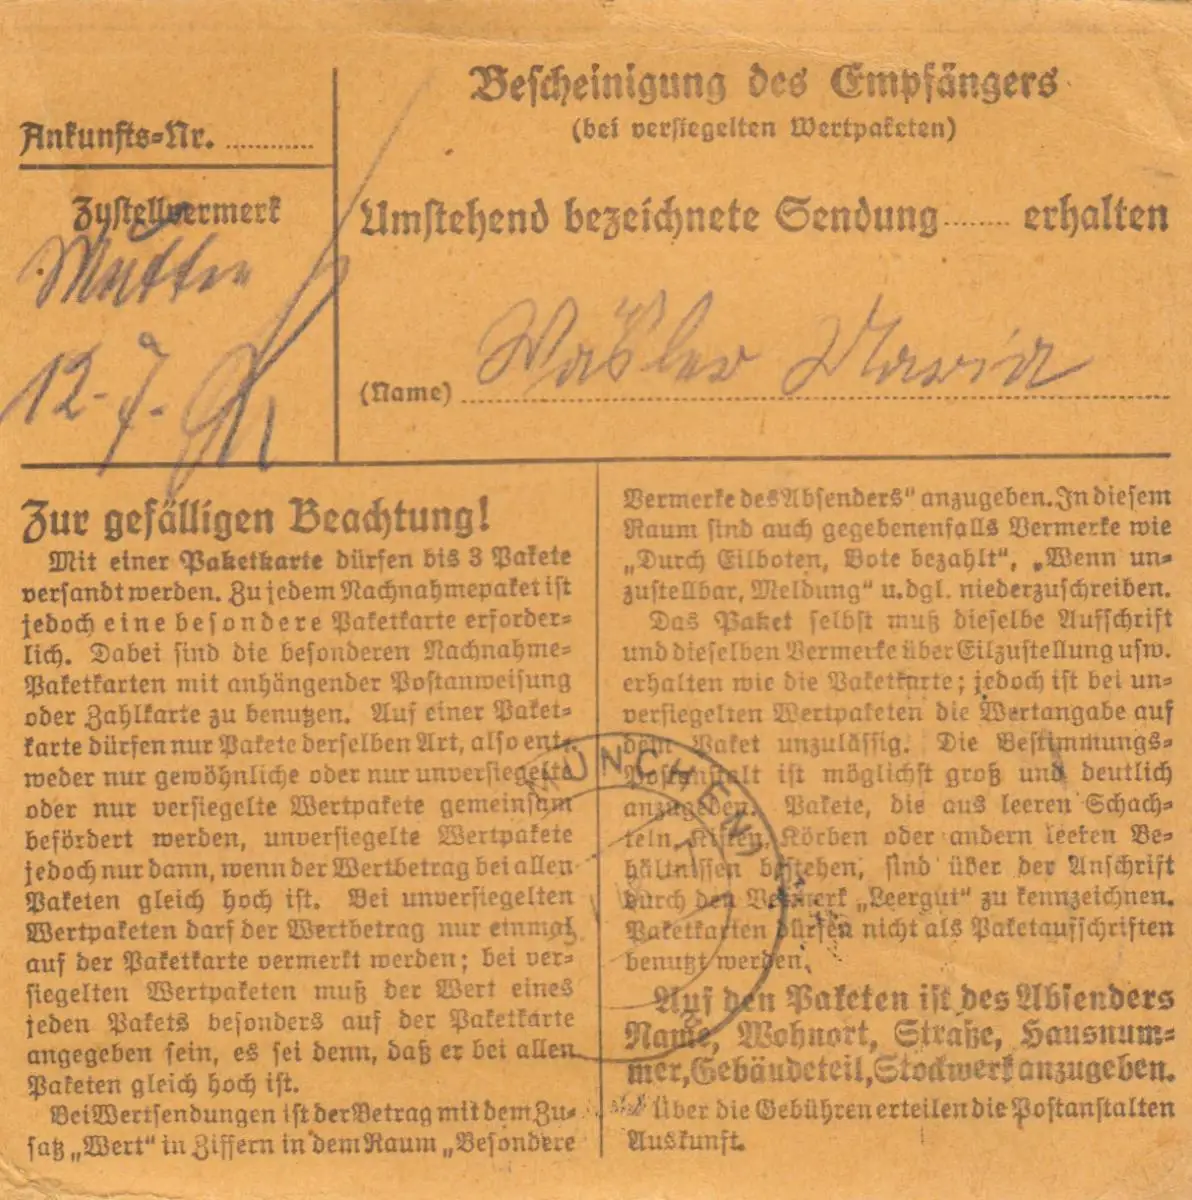 Ankunfts-Nr. ............
Zustellvermerk
Mutter
12.7.
Bescheinigung des Empfängers
(bei versiegelten Wertpaketen)
Umstehend bezeichnete Sendung ........ erhalten
(Name) Wäsler Maria
Zur gefälligen Beachtung!
Mit einer Paketkarte dürfen bis 3 Pakete
versandt werden. Zu jedem Nachnahmepaket ist
jedoch eine besondere Paketkarte erforder-
lich. Dabei sind die besonderen Nachnahme-
Paketkarten mit anhängender Postanweisung
oder Zahlkarte zu benutzen. Auf einer Paket-
karte dürfen nur Pakete derselben Art, also ent-
weder nur gewöhnliche oder nur unversiegelte
oder nur versiegelte Wertpakete gemeinsam
befördert werden, unversiegelte Wertpakete
jedoch nur dann, wenn der Wertbetrag bei allen
Paketen gleich hoch ist. Bei unversiegelten
Wertpaketen darf der Wertbetrag nur einmal
auf der Paketkarte vermerkt werden; bei ver-
siegelten Wertpaketen muß der Wert eines
jeden Pakets besonders auf der Paketkarte
angegeben sein, es sei denn, daß er bei allen
Paketen gleich hoch ist.
Bei Wertsendungen ist der Betrag mit dem Zu-
satz „Wert" in Ziffern in dem Raum „Besondere
Vermerke des Absenders" anzugeben. In diesem
Raum sind auch gegebenenfalls Vermerke wie
„Durch Eilboten, Bote bezahlt", „Wenn un-
zustellbar, Meldung" u. dgl. niederzuschreiben.
Das Paket selbst muß dieselbe Aufschrift
und dieselben Vermerke über Eilzustellung usw.
erhalten wie die Paketkarte; jedoch ist bei un-
versiegelten Wertpaketen die Wertangabe auf
dem Paket unzulässig. Die Bestimmungs-
Postanstalt ist möglichst groß und deutlich
anzugeben. Pakete, die aus leeren Schach-
teln, Kisten, Körben oder andern leeren Be-
hältnissen bestehen, sind über der Anschrift
durch den Vermerk „Leergut" zu kennzeichnen.
Paketkarten dürfen nicht als Paketaufschriften
benutzt werden.
Auf den Paketen ist des Absenders
Name, Wohnort, Straße, Hausnum-
mer, Gebäudeteil, Stockwerk anzugeben.
Über die Gebühren erteilen die Postanstalten
Auskunft.
MÜNCHEN